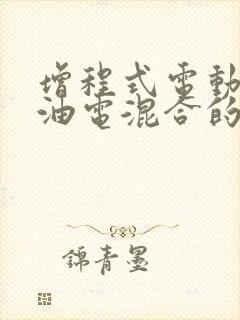 增程式電動
油電混合的
錦青墨